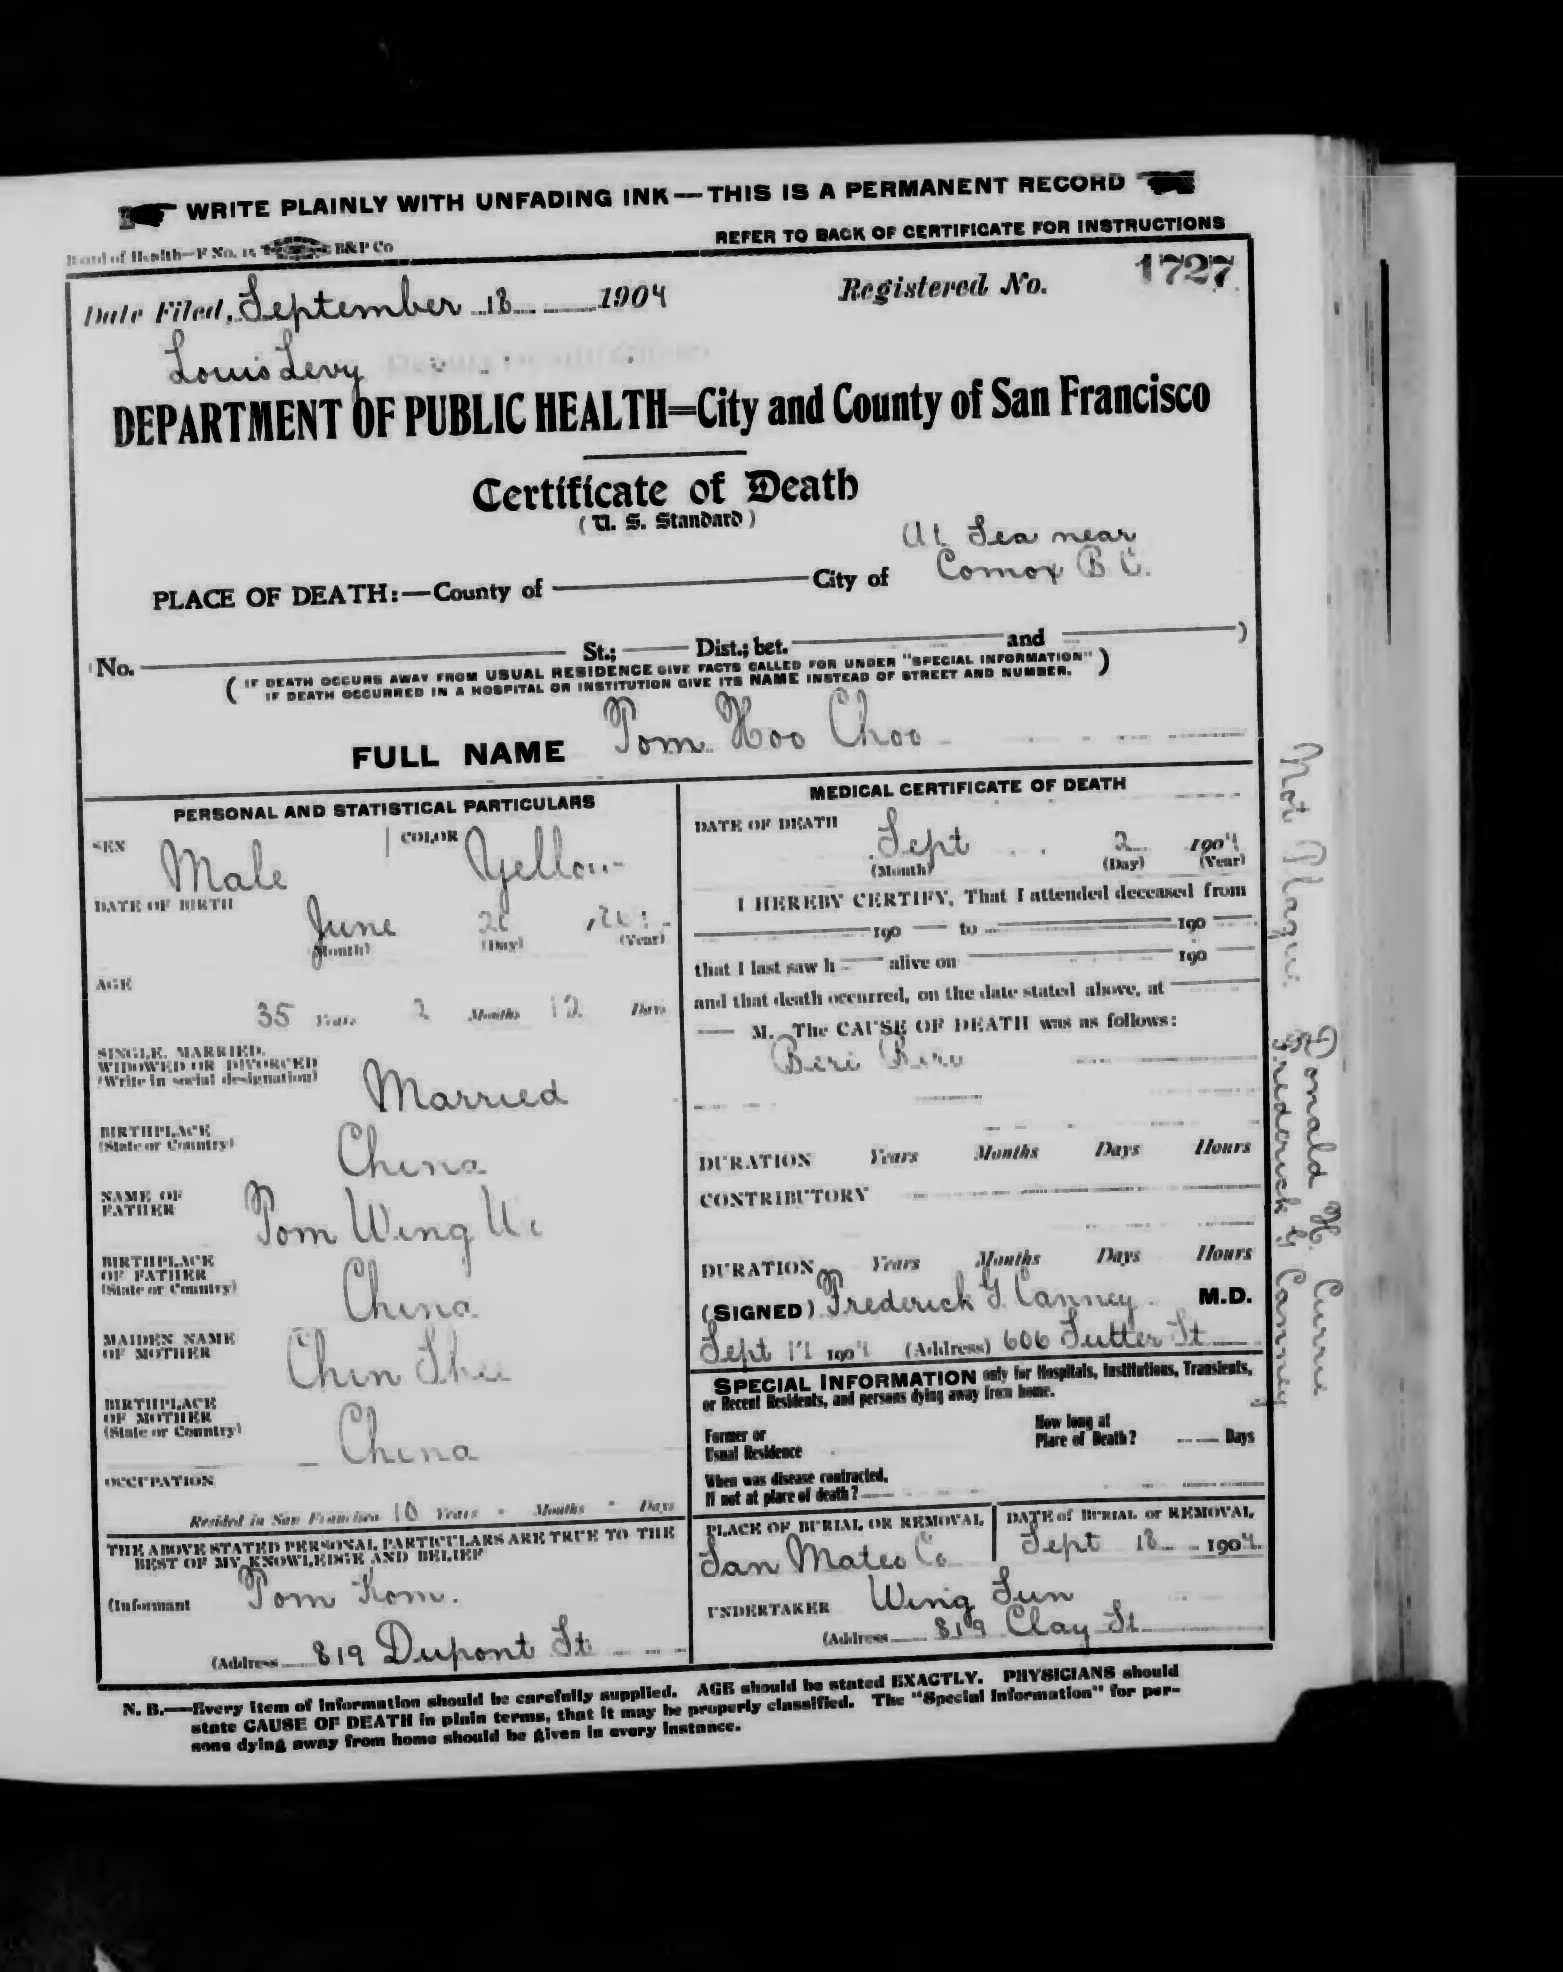 WRITE PLAINLY WITH UNFADING INK—THIS IS A PERMANENT RECORD
Board of Health—F No. 15 B&P Co
REFER TO BACK OF CERTIFICATE FOR INSTRUCTIONS
Date Filed, September 18 1904 Registered No. 1727
Louis Levy
DEPARTMENT OF PUBLIC HEALTH=City and County of San Francisco
Certificate of Death
(U. S. Standard)
At Sea near
PLACE OF DEATH:—County of City of Comox B C.
(No. St.; Dist.; bet. and )
(IF DEATH OCCURS AWAY FROM USUAL RESIDENCE GIVE FACTS CALLED FOR UNDER "SPECIAL INFORMATION"
IF DEATH OCCURRED IN A HOSPITAL OR INSTITUTION GIVE ITS NAME INSTEAD OF STREET AND NUMBER.)
FULL NAME Tom Hoo Choo
PERSONAL AND STATISTICAL PARTICULARS
SEX Male COLOR Yellow
DATE OF BIRTH
June 20
(Month) (Day) (Year)
AGE
35 Years 2 Months 12 Days
SINGLE, MARRIED,
WIDOWED OR DIVORCED
(Write in social designation) Married
BIRTHPLACE
(State or Country) China
NAME OF
FATHER Tom Wing
BIRTHPLACE
OF FATHER
(State or Country) China
MAIDEN NAME
OF MOTHER Chin Shee
BIRTHPLACE
OF MOTHER
(State or Country) China
OCCUPATION
Resided in San Francisco 10 Years - Months - Days
THE ABOVE STATED PERSONAL PARTICULARS ARE TRUE TO THE
BEST OF MY KNOWLEDGE AND BELIEF
(Informant Tom Kom.
(Address 819 Dupont St
MEDICAL CERTIFICATE OF DEATH
DATE OF DEATH
Sept 2 1904
(Month) (Day) (Year)
I HEREBY CERTIFY, That I attended deceased from
190 to 190
that I last saw h alive on 190
and that death occurred, on the date stated above, at
M. The CAUSE OF DEATH was as follows:
Beri Beri
DURATION Years Months Days Hours
CONTRIBUTORY
DURATION Years Months Days Hours
(SIGNED) Frederick G. Canney M.D.
Sept 17 1904 (Address) 606 Sutter St
SPECIAL INFORMATION only for Hospitals, Institutions, Transients,
or Recent Residents, and persons dying away from home.
Former or
Usual Residence
How long at
Place of Death? Days
When was disease contracted,
If not at place of death?
PLACE OF BURIAL OR REMOVAL DATE of BURIAL or REMOVAL
San Mateo Co Sept 18 1904.
UNDERTAKER Wing Sun
(Address 819 Clay St
N. B.—Every item of information should be carefully supplied. AGE should be stated EXACTLY. PHYSICIANS should
state CAUSE OF DEATH in plain terms, that it may be properly classified. The "Special Information" for per-
sons dying away from home should be given in every instance.
Not Plague.
Donald H. Currie
Frederick G Canney